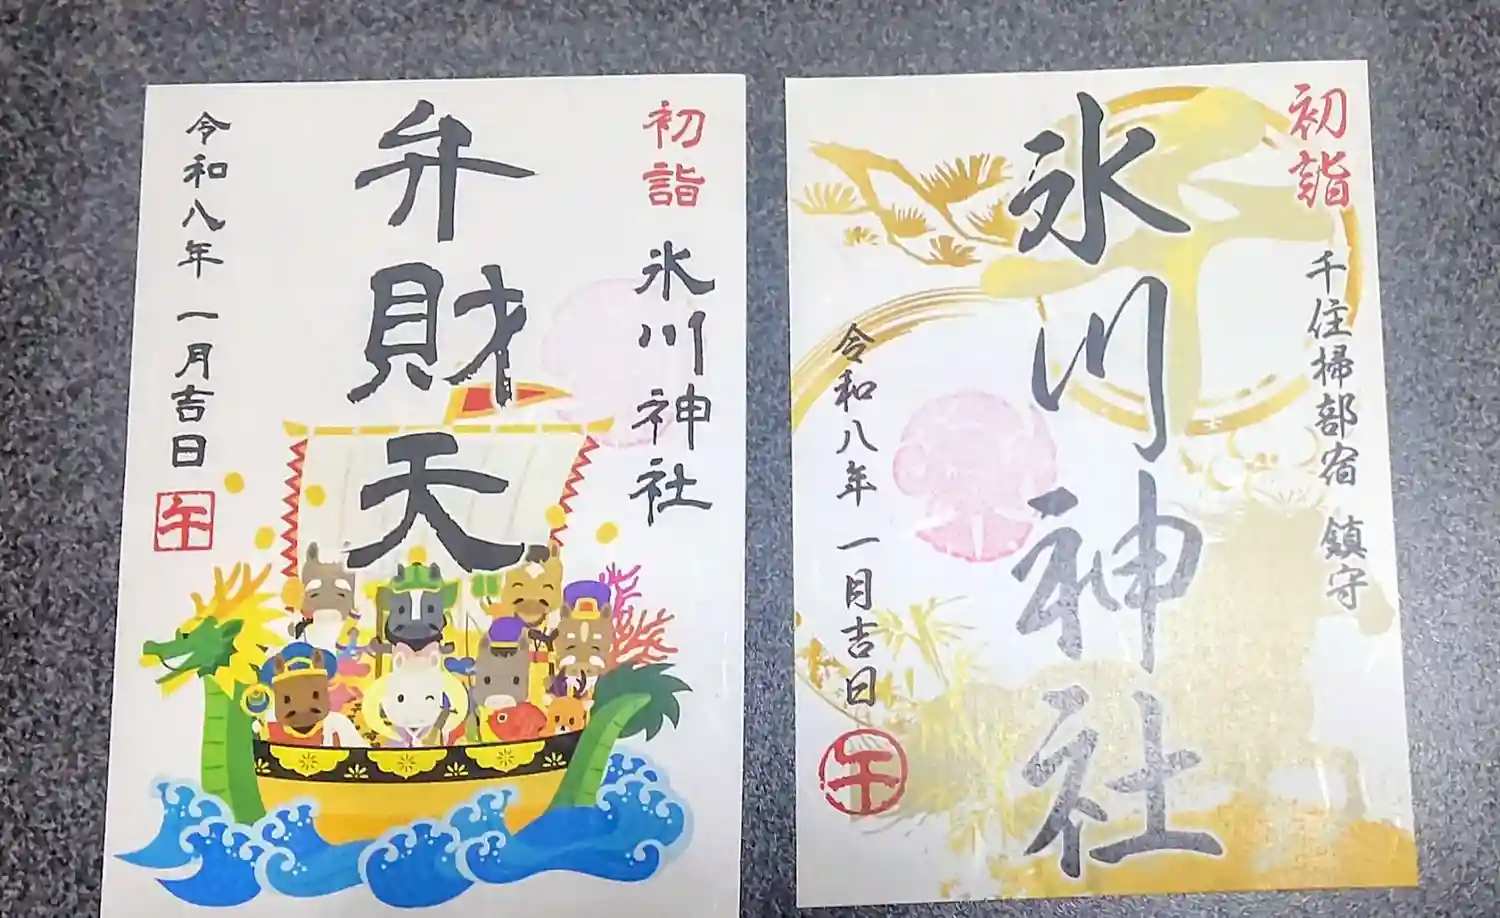 初詣
氷川神社
弁財天
令和八年一月吉日
午
初詣
千住掃部宿 鎮守
氷川神社
令和八年一月吉日
午